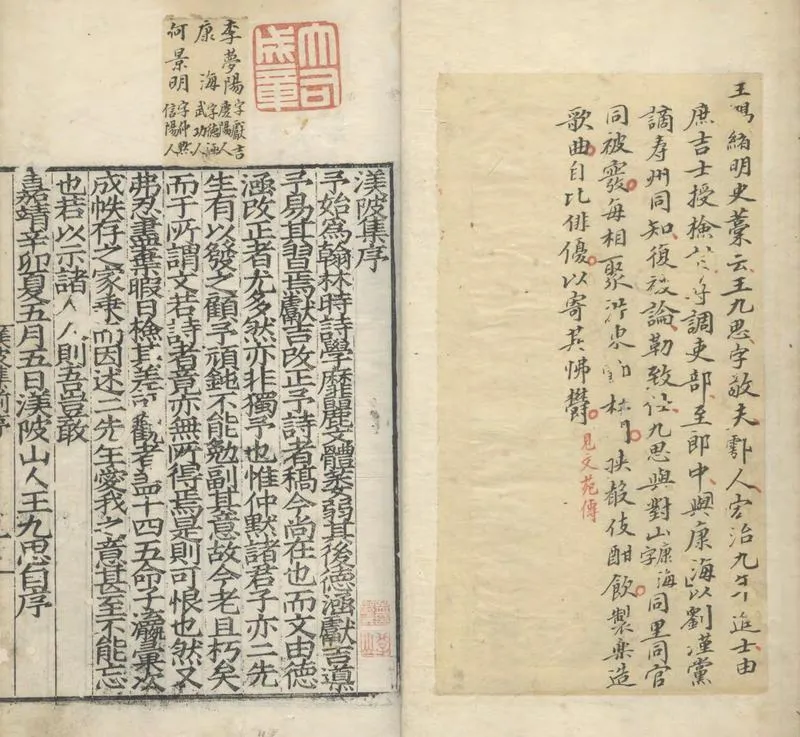 王鴻緒明史藁云王九思字敬夫鄠人宏治九年進士由
庶吉士授檢討尋調吏部至郎中與康海以劉瑾黨
謫壽州同知復被論勒致仕九思與對山字康海同里同官
同被竄每相聚沜東鄠杜間挾聲伎酣飲製樂造
歌曲自比俳優以寄其怫鬱見文苑傳
大司成章
李夢陽字獻吉慶陽人
康海字德涵武功人
何景明字仲默信陽人
渼陂集序
予始為翰林時詩學靡麗文體萎弱其後德涵獻吉導
予易其習焉獻吉改正予詩者稿今尚在也而文由德
涵改正者尤多然亦非獨予也惟仲默諸君子亦二先
生有以發之顧予頑鈍不能勉副其意故今老且朽矣
而于所謂文若詩者竟亦無所得焉是則可恨也然又
弗忍盡棄暇日檢其差可觀者盖十四五命子瀛彙次
成帙存之家乘而因述二先生愛我之意甚至不能忘
也若以示諸人人則吾豈敢
嘉靖辛卯夏五月五日渼陂山人王九思自序